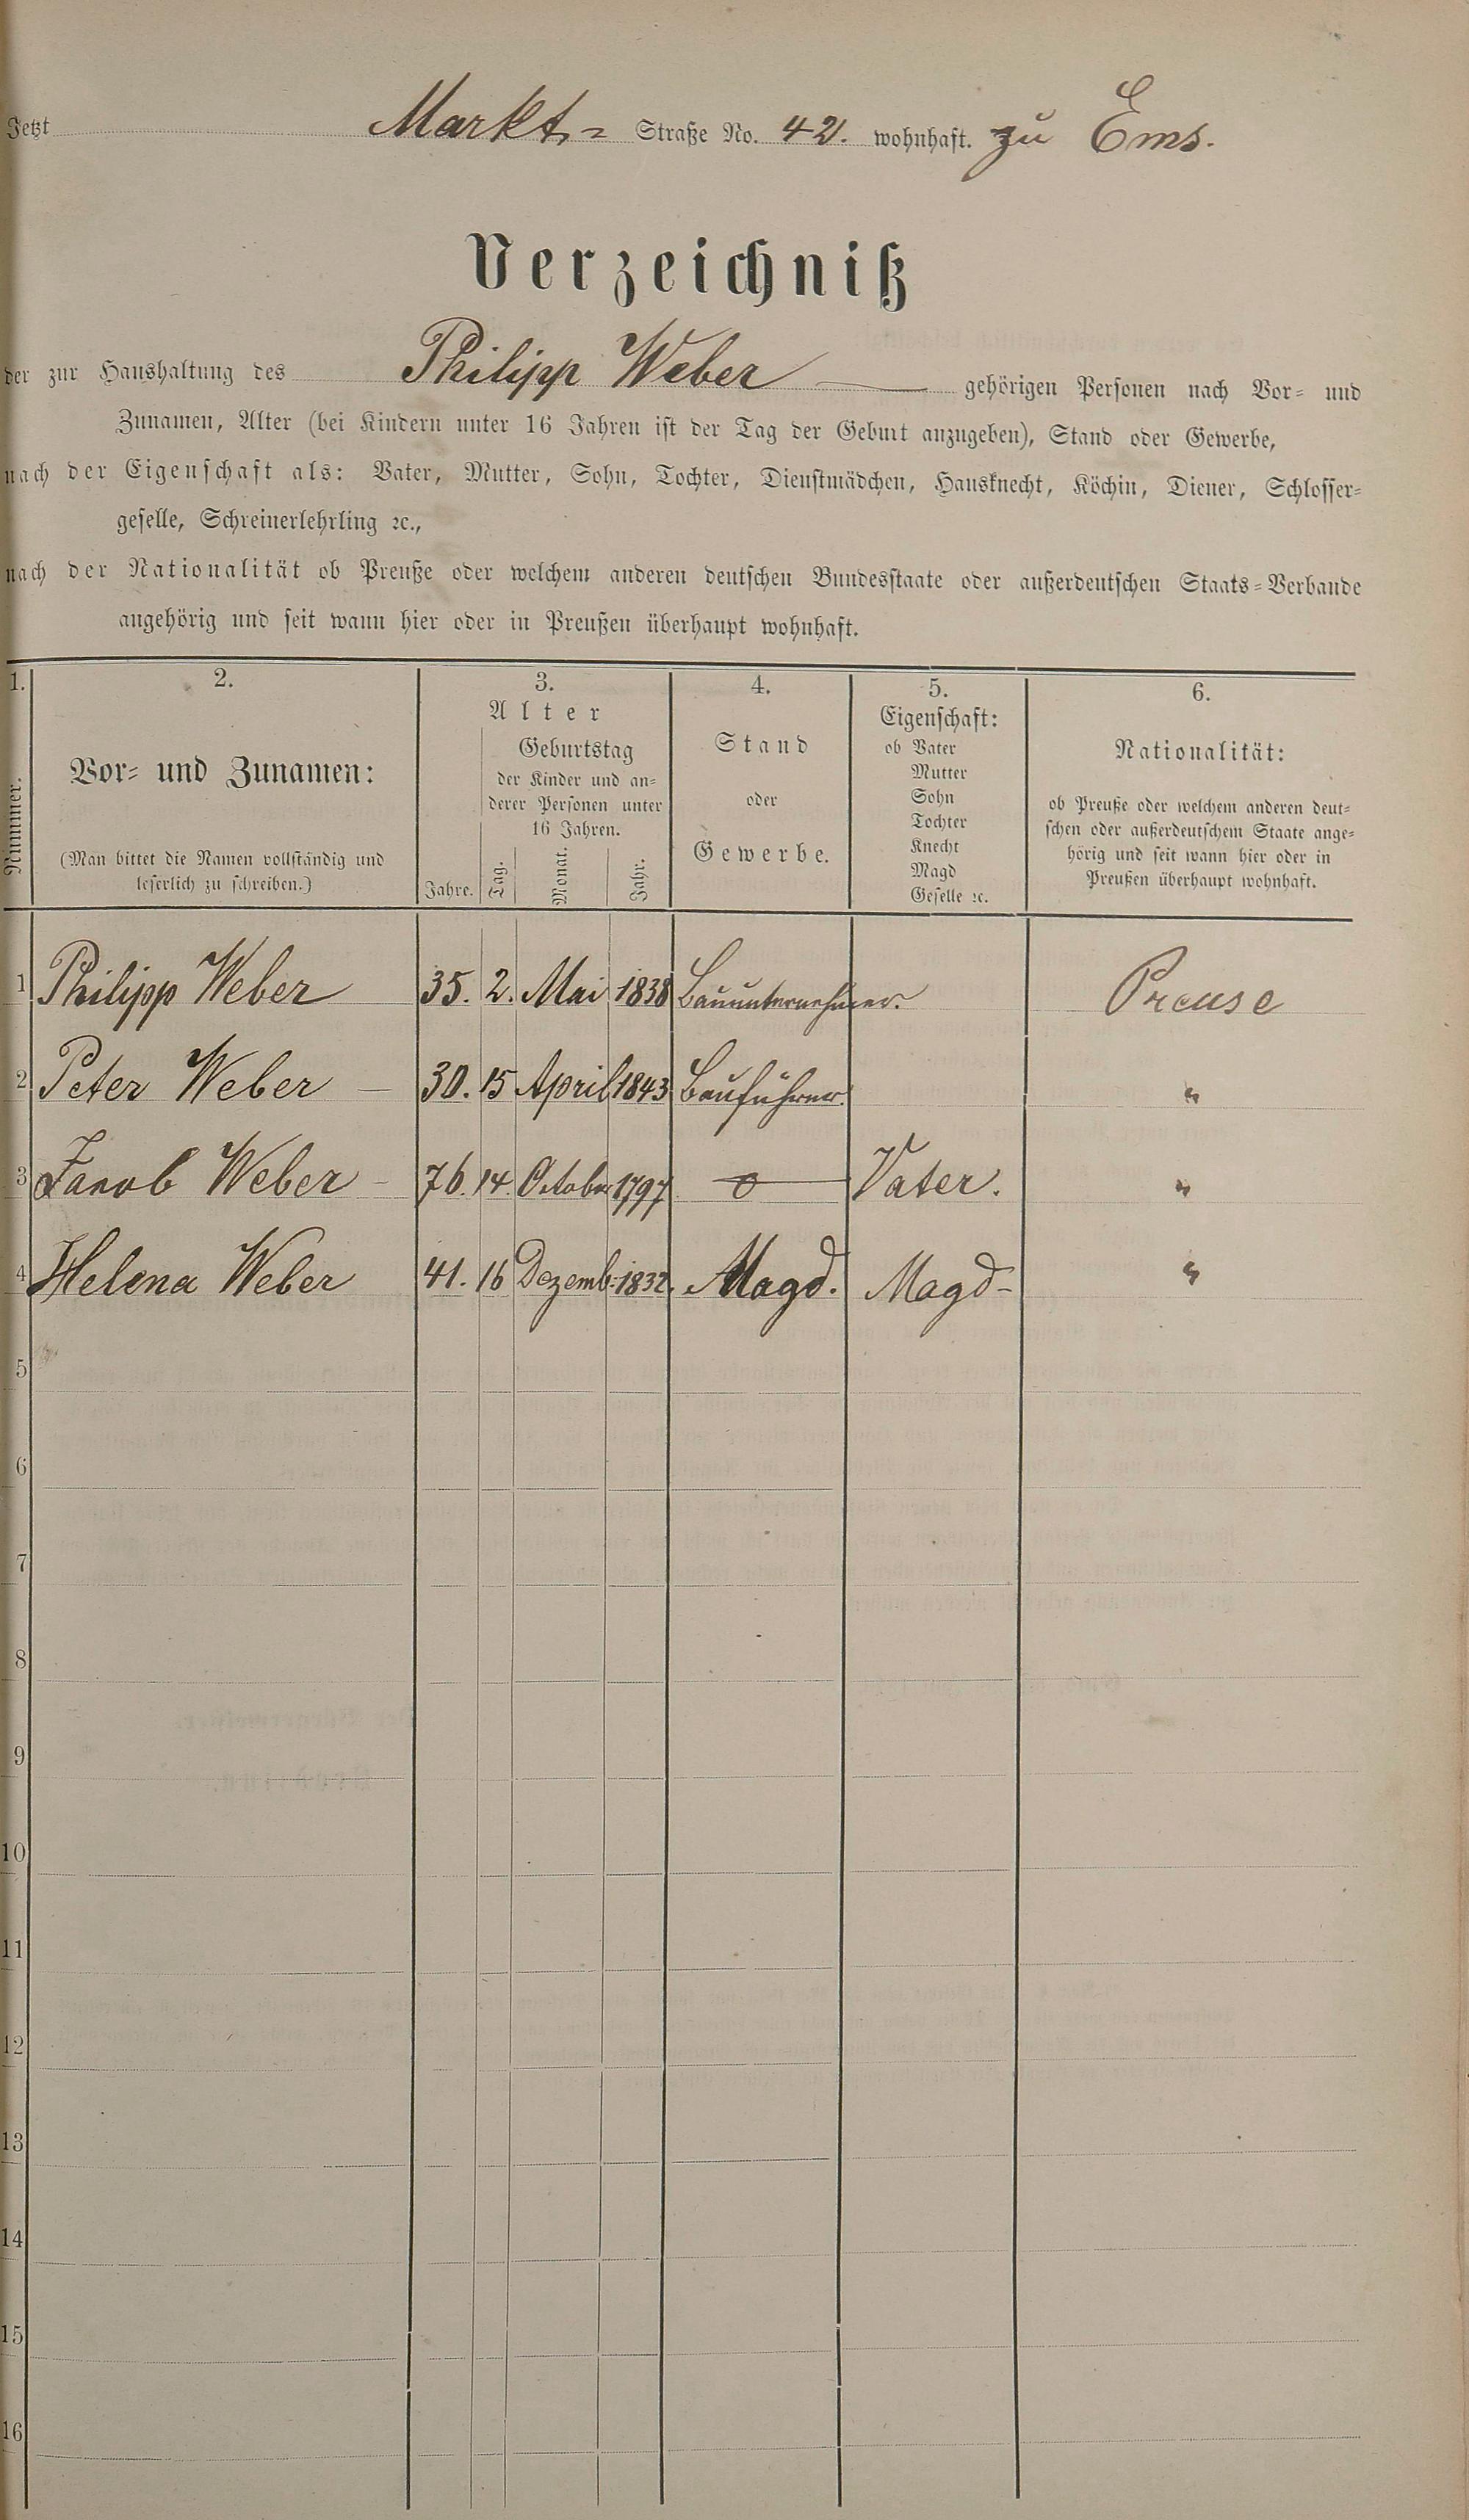 Jetzt Markt- Straße No. 42. wohnhaft. zu Ems.
Verzeichniß
der zur Haushaltung des Philipp Weber — gehörigen Personen nach Vor- und
Zunamen, Alter (bei Kindern unter 16 Jahren ist der Tag der Geburt anzugeben), Stand oder Gewerbe,
nach der Eigenschaft als: Vater, Mutter, Sohn, Tochter, Dienstmädchen, Hausknecht, Köchin, Diener, Schlosser-
geselle, Schreinerlehrling ꝛc.,
nach der Nationalität ob Preuße oder welchem anderen deutschen Bundesstaate oder außerdeutschen Staats-Verbande
angehörig und seit wann hier oder in Preußen überhaupt wohnhaft.
1.
Nummer.
2.
Vor- und Zunamen:
(Man bittet die Namen vollständig und
leserlich zu schreiben.)
3.
Alter
Jahre.
Geburtstag
der Kinder und an-
derer Personen unter
16 Jahren.
Tag.
Monat.
Jahr.
4.
Stand
oder
Gewerbe.
5.
Eigenschaft:
ob Vater
Mutter
Sohn
Tochter
Knecht
Magd
Geselle ꝛc.
6.
Nationalität:
ob Preuße oder welchem anderen deut-
schen oder außerdeutschem Staate ange-
hörig und seit wann hier oder in
Preußen überhaupt wohnhaft.
1 Philipp Weber 35. 2. Mai 1838 Bauunternehmer. Preuse
2 Peter Weber — 30. 15 April 1843 Bauführer. "
3 Jakob Weber - 76. 14. October 1797 —o— Vater. "
4 Helena Weber 41. 16 Dezemb. 1832. Magd. Magd- "
5
6
7
8
9
10
11
12
13
14
15
16